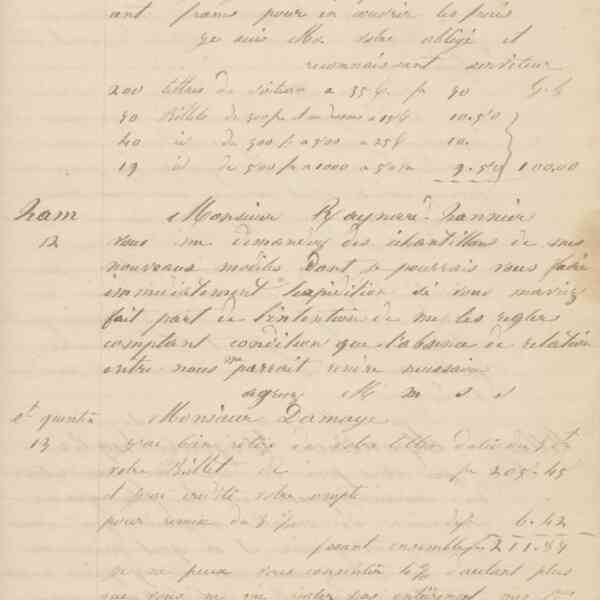 cent francs pour en couvrir les frais
Je suis Mr votre obligé et
reconnaissant serviteur
200 lettres de voiture a 35 f. 70 G.G
70 Billets de 300 f et au dessous a 15 f 10.50
40 id de 300 f a 500 a 25 f 10.
19 id de 500 f a 1000 a 50 c 9.50 100.00
ham Monsieur Raynard-hannier
12 vous me demandez des échantillons de mes
nouveaux modèles dont je pourrais vous faire
immédiatement l'expédition si vous m'aviez
fait part de l'intention de me les regler
comptant condition que l'absence de relation
entre nous me parrait rendre necessaire
agreez M m s s
St quentin Monsieur Damaye
13 j'ai bien retiré de votre lettre datée du
votre Billet de f 205.45
et j'ai crédité votre compte
pour remise de 3 % de 6.42
faisant ensemble f 211.87
je ne peux vous consentir % d'autant plus
que vous ne me entièrement mes